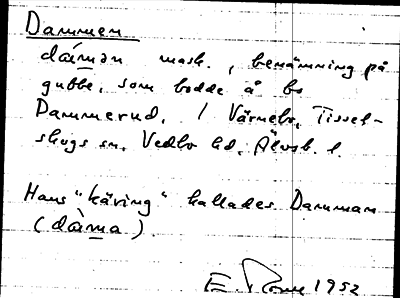 Dammen
dám̲ən mask., benämning på
gubbe, som bodde å bs
Dammerud, i Värnebo, Tissel-
skogs sn, Vedbo hd, Älvsb. l.
Hans "käring" kallades Damman
(dàm̲a).
E. 1952